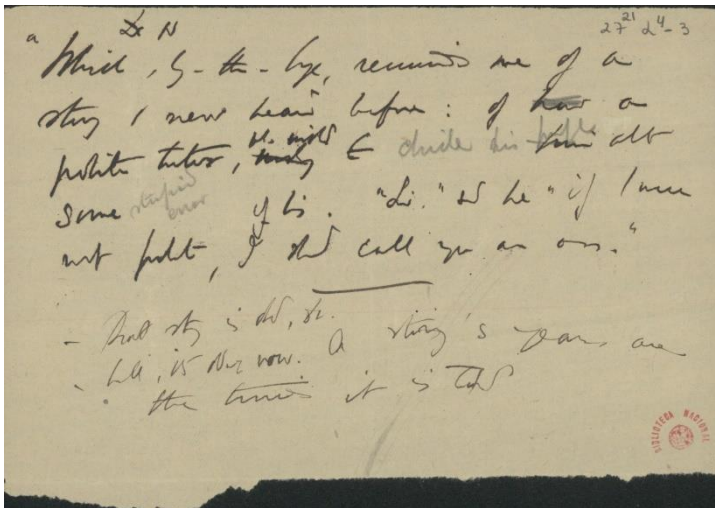 Dr N
27²¹ L⁴-3
a
Which, by-the-bye, reminds me of a
story I never heard before: of a
polite tutor, to chide his pupil abt
some stupid error of his. "Sir." sd he "if I were
not polite, I shd call you an ass."
- That story is old, sr.
- , is new. A story's years are
the times it is told
BIBLIOTECA NACIONAL